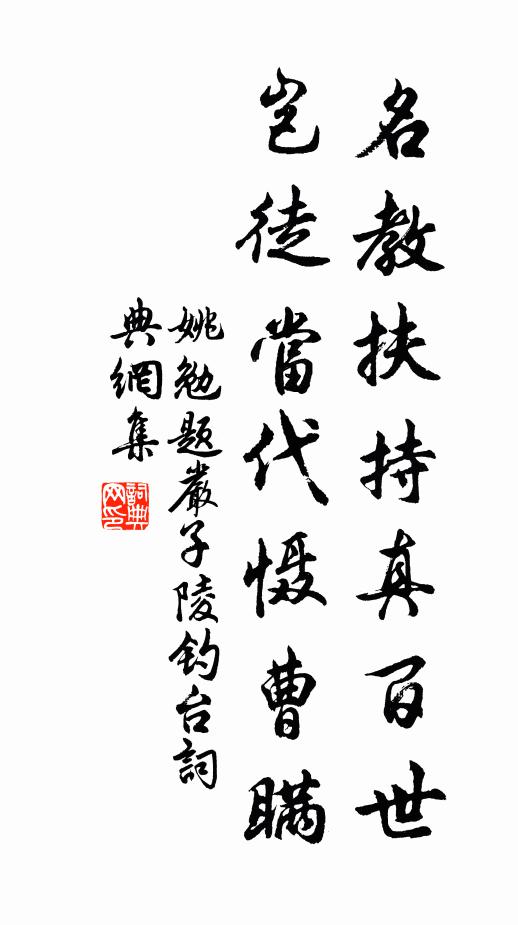 名教扶持真百世
岂徒當代慑曹瞞
姚勉题嚴子陵钓台詞
典網集
詞典
网印